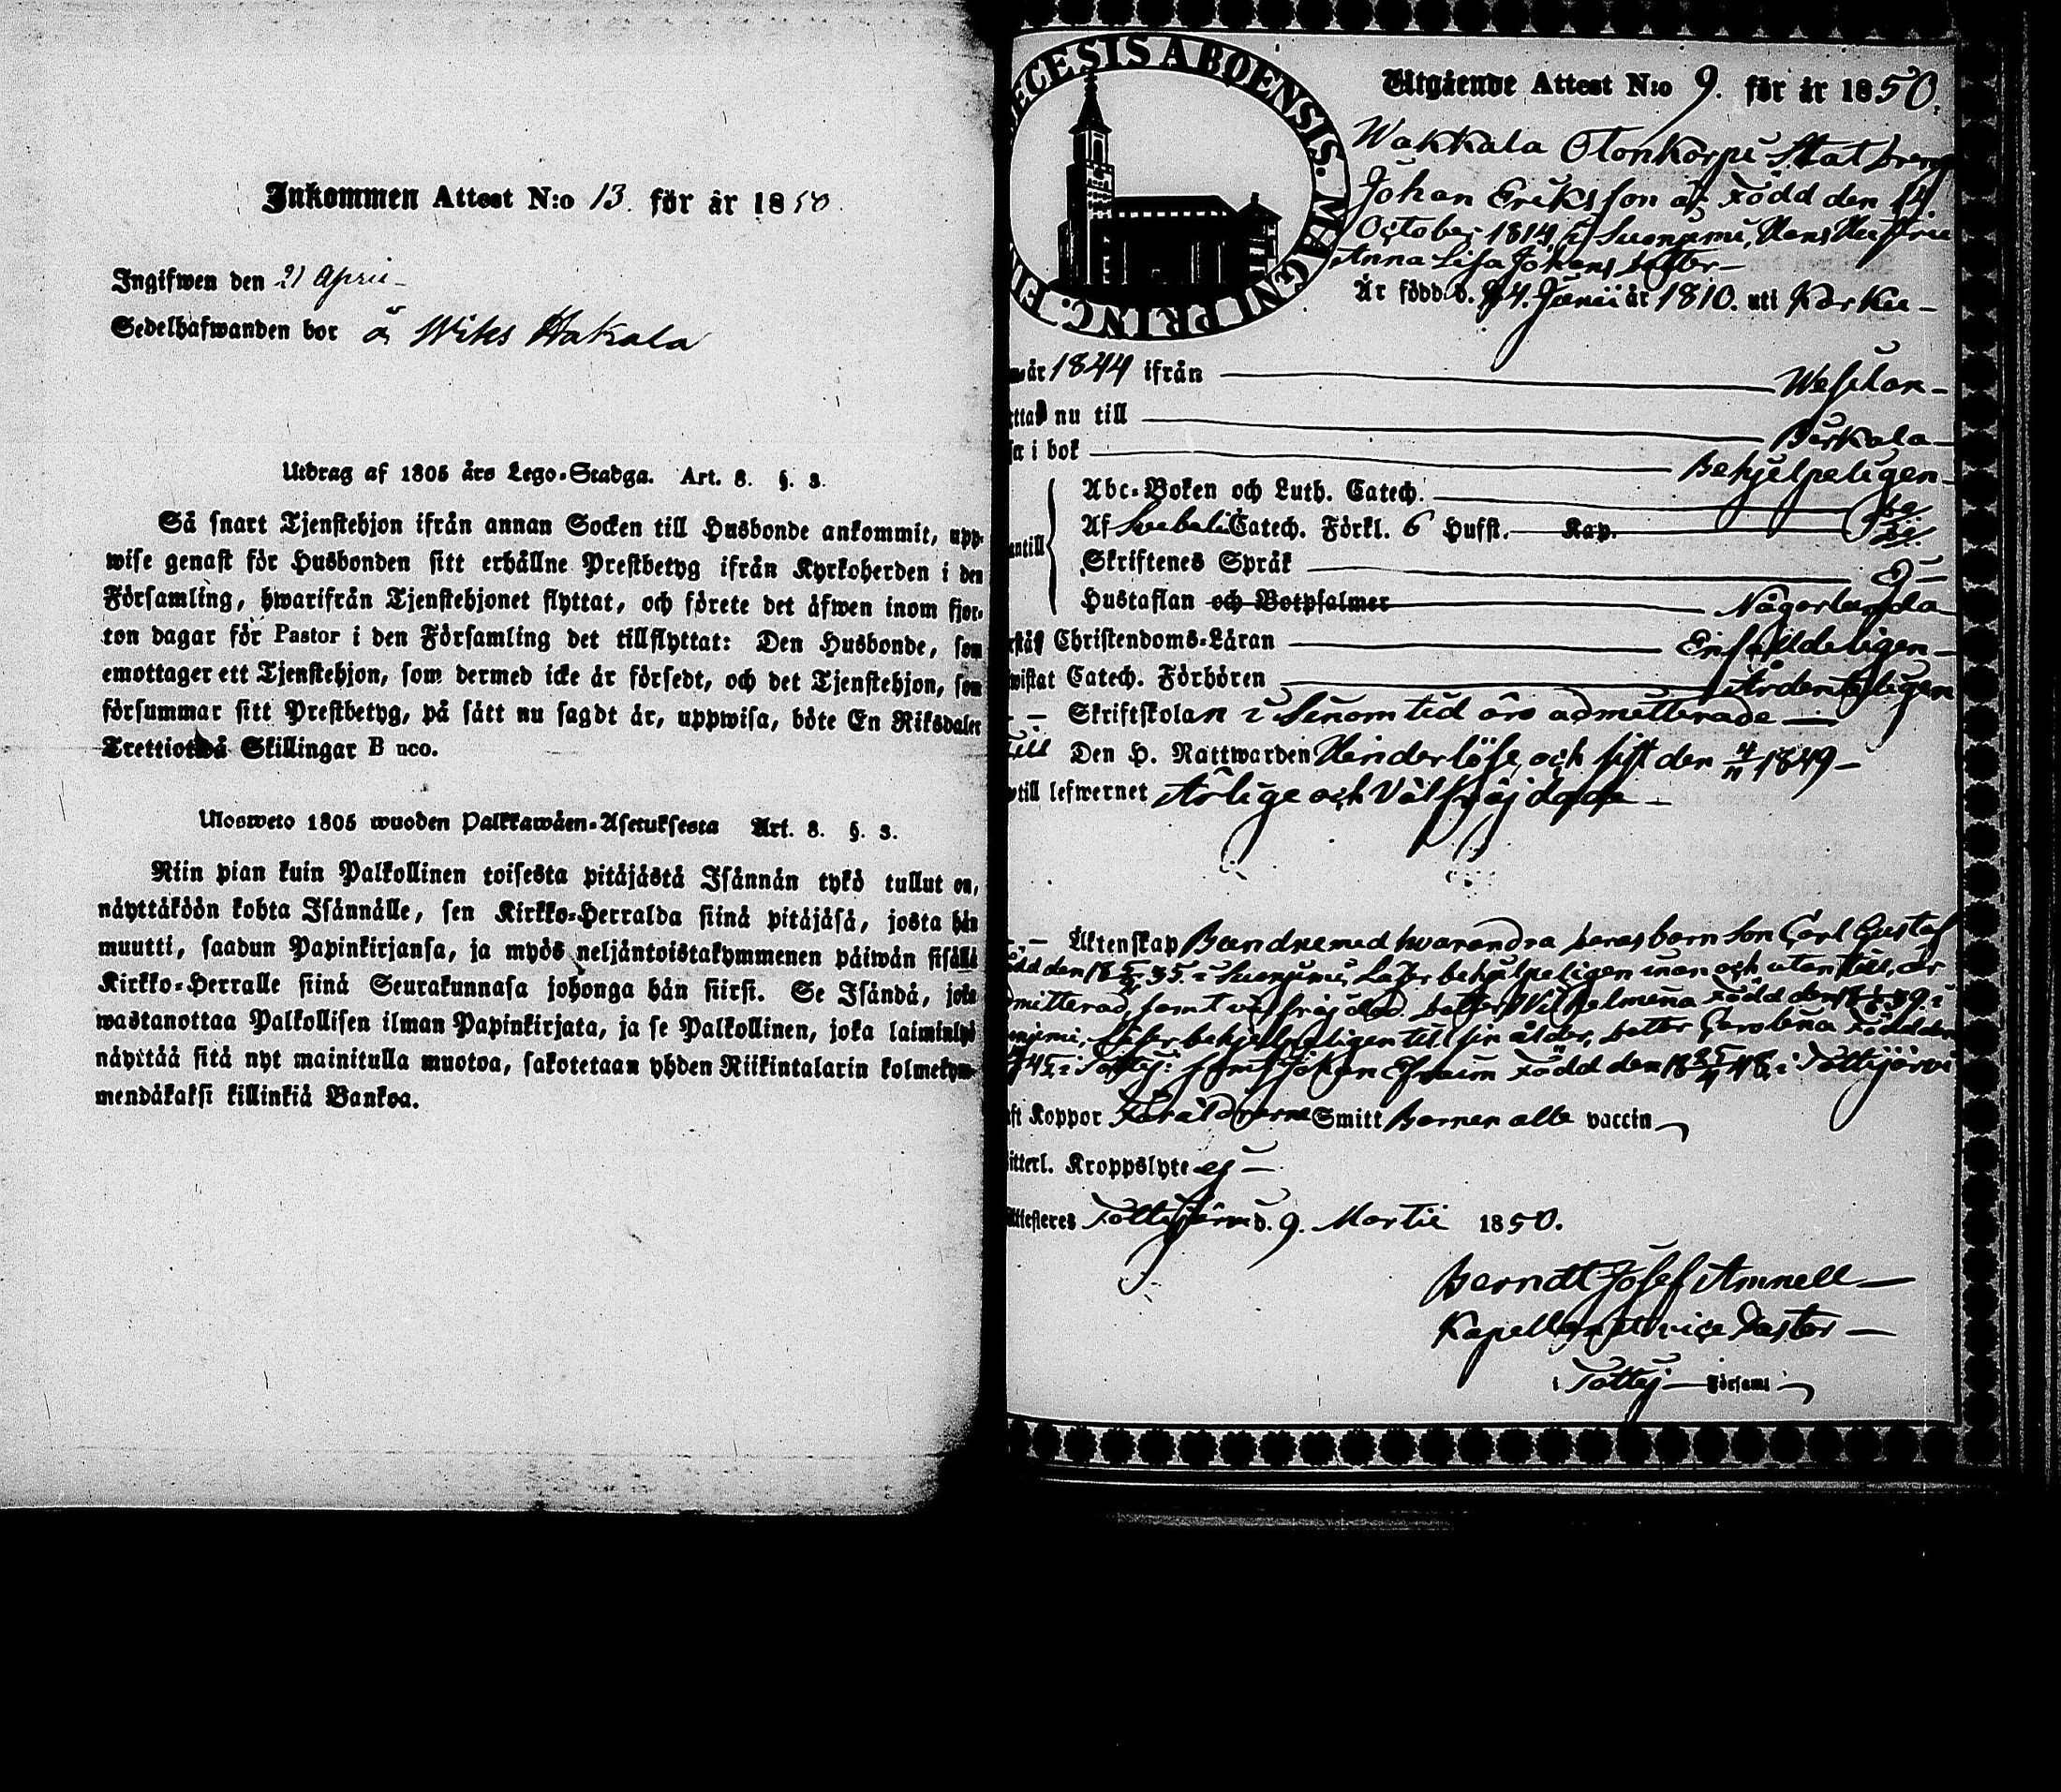 Inkommen Attest N:o 13. för år 1850.
Ingifwen den 21 April
Sedelhafwanden bor å Wiks Hakala
Utdrag af 1805 års Lego-Stadga. Art. 8. §. 3.
Så snart Tjenstehjon ifrån annan Socken till Husbonde ankommit, upp-
wise genast för Husbonden sitt erhållne Prestbetyg ifrån Kyrkoherden i den
Församling, hwarifrån Tjenstehjonet flyttat, och förete det äfwen inom fjor-
ton dagar för Pastor i den Församling det tillflyttat: Den Husbonde, som
emottager ett Tjenstehjon, som dermed icke är försedt, och det Tjenstehjon, som
försummar sitt Prestbetyg, på sätt nu sagdt är, uppwisa, böte En Riksdaler
Trettiotvå Skillingar B nco.
Ulosweto 1805 wuoden Palkkawäen-Asetuksesta Art. 8. §. 3.
Niin pian kuin Palkollinen toisesta pitäjästä Isännän tykö tullut on,
näyttäköön kohta Isännälle, sen Kirkko-Herralda siinä pitäjäsä, josta hän
muutti, saadun Papinkirjansa, ja myös neljäntoistakymmenen päiwän sisällä
Kirkko-Herralle siinä Seurakunnasa johonga hän siirsi. Se Isändä, joka
wastanottaa Palkollisen ilman Papinkirjata, ja se Palkollinen, joka laiminlyö
näyttää sitä nyt mainitulla muotoa, sakotetaan yhden Riikintalarin kolmekym-
mendäkaksi killinkiä Bankoa.
ECESIS ABOENSIS. MAGNI PRINC. FI
Utgående Attest N:o 9. för år 1850.
Wakkala Otonkorpi Statdreng
Johan Eriksson är Född den 14
October 1814 i Suonjemi, Hans Hustru
Anna Lisa Johansdotter
Är född d. 24. Junii år 1810. uti Karku
år 1844 ifrån Wesilax
ttad nu till Birkala
i bok Behjelpeligen
Abc-Boken och Luth. Catech.
Af Svebelii Catech. Förkl. 6 Hufst. Kap.
Skriftenes Språk Ej
Hustaflan och Botpsalmer Någorlunda
Christendoms-Läran Enfaldeligen
wistat Catech. Förhören Ordenteligen
Skriftskolan i Sinom tid äro admitterade
till Den H. Nattwarden Hinderlöse, och sist den 4/11 1849
till lefwernet Ärlige och Välfräjdade
Äktenskap Bundne med hwarandra deras barn Son Carl Gustaf
född den 18 35. i Suonjemi, Läser behjelpeligen inan och utantill, är
admitterad, samt välfräjdad. dotter Wilhelmina Född den 39. i
Suonjemi, Läser behjelpeligen till sin ålder, dotter Carolina Född den
45. i Tottij: samt Johan Efraim Född den 48. i Tottijärvi
Koppor Föräldrarne Smitt Barnen alla vaccin
Kroppslyte ej
Attesteres Tottijärvi d. 9. Martii 1850.
Berndt Josef Amnell
Kapellan vice Pastor
i Tottij Församl